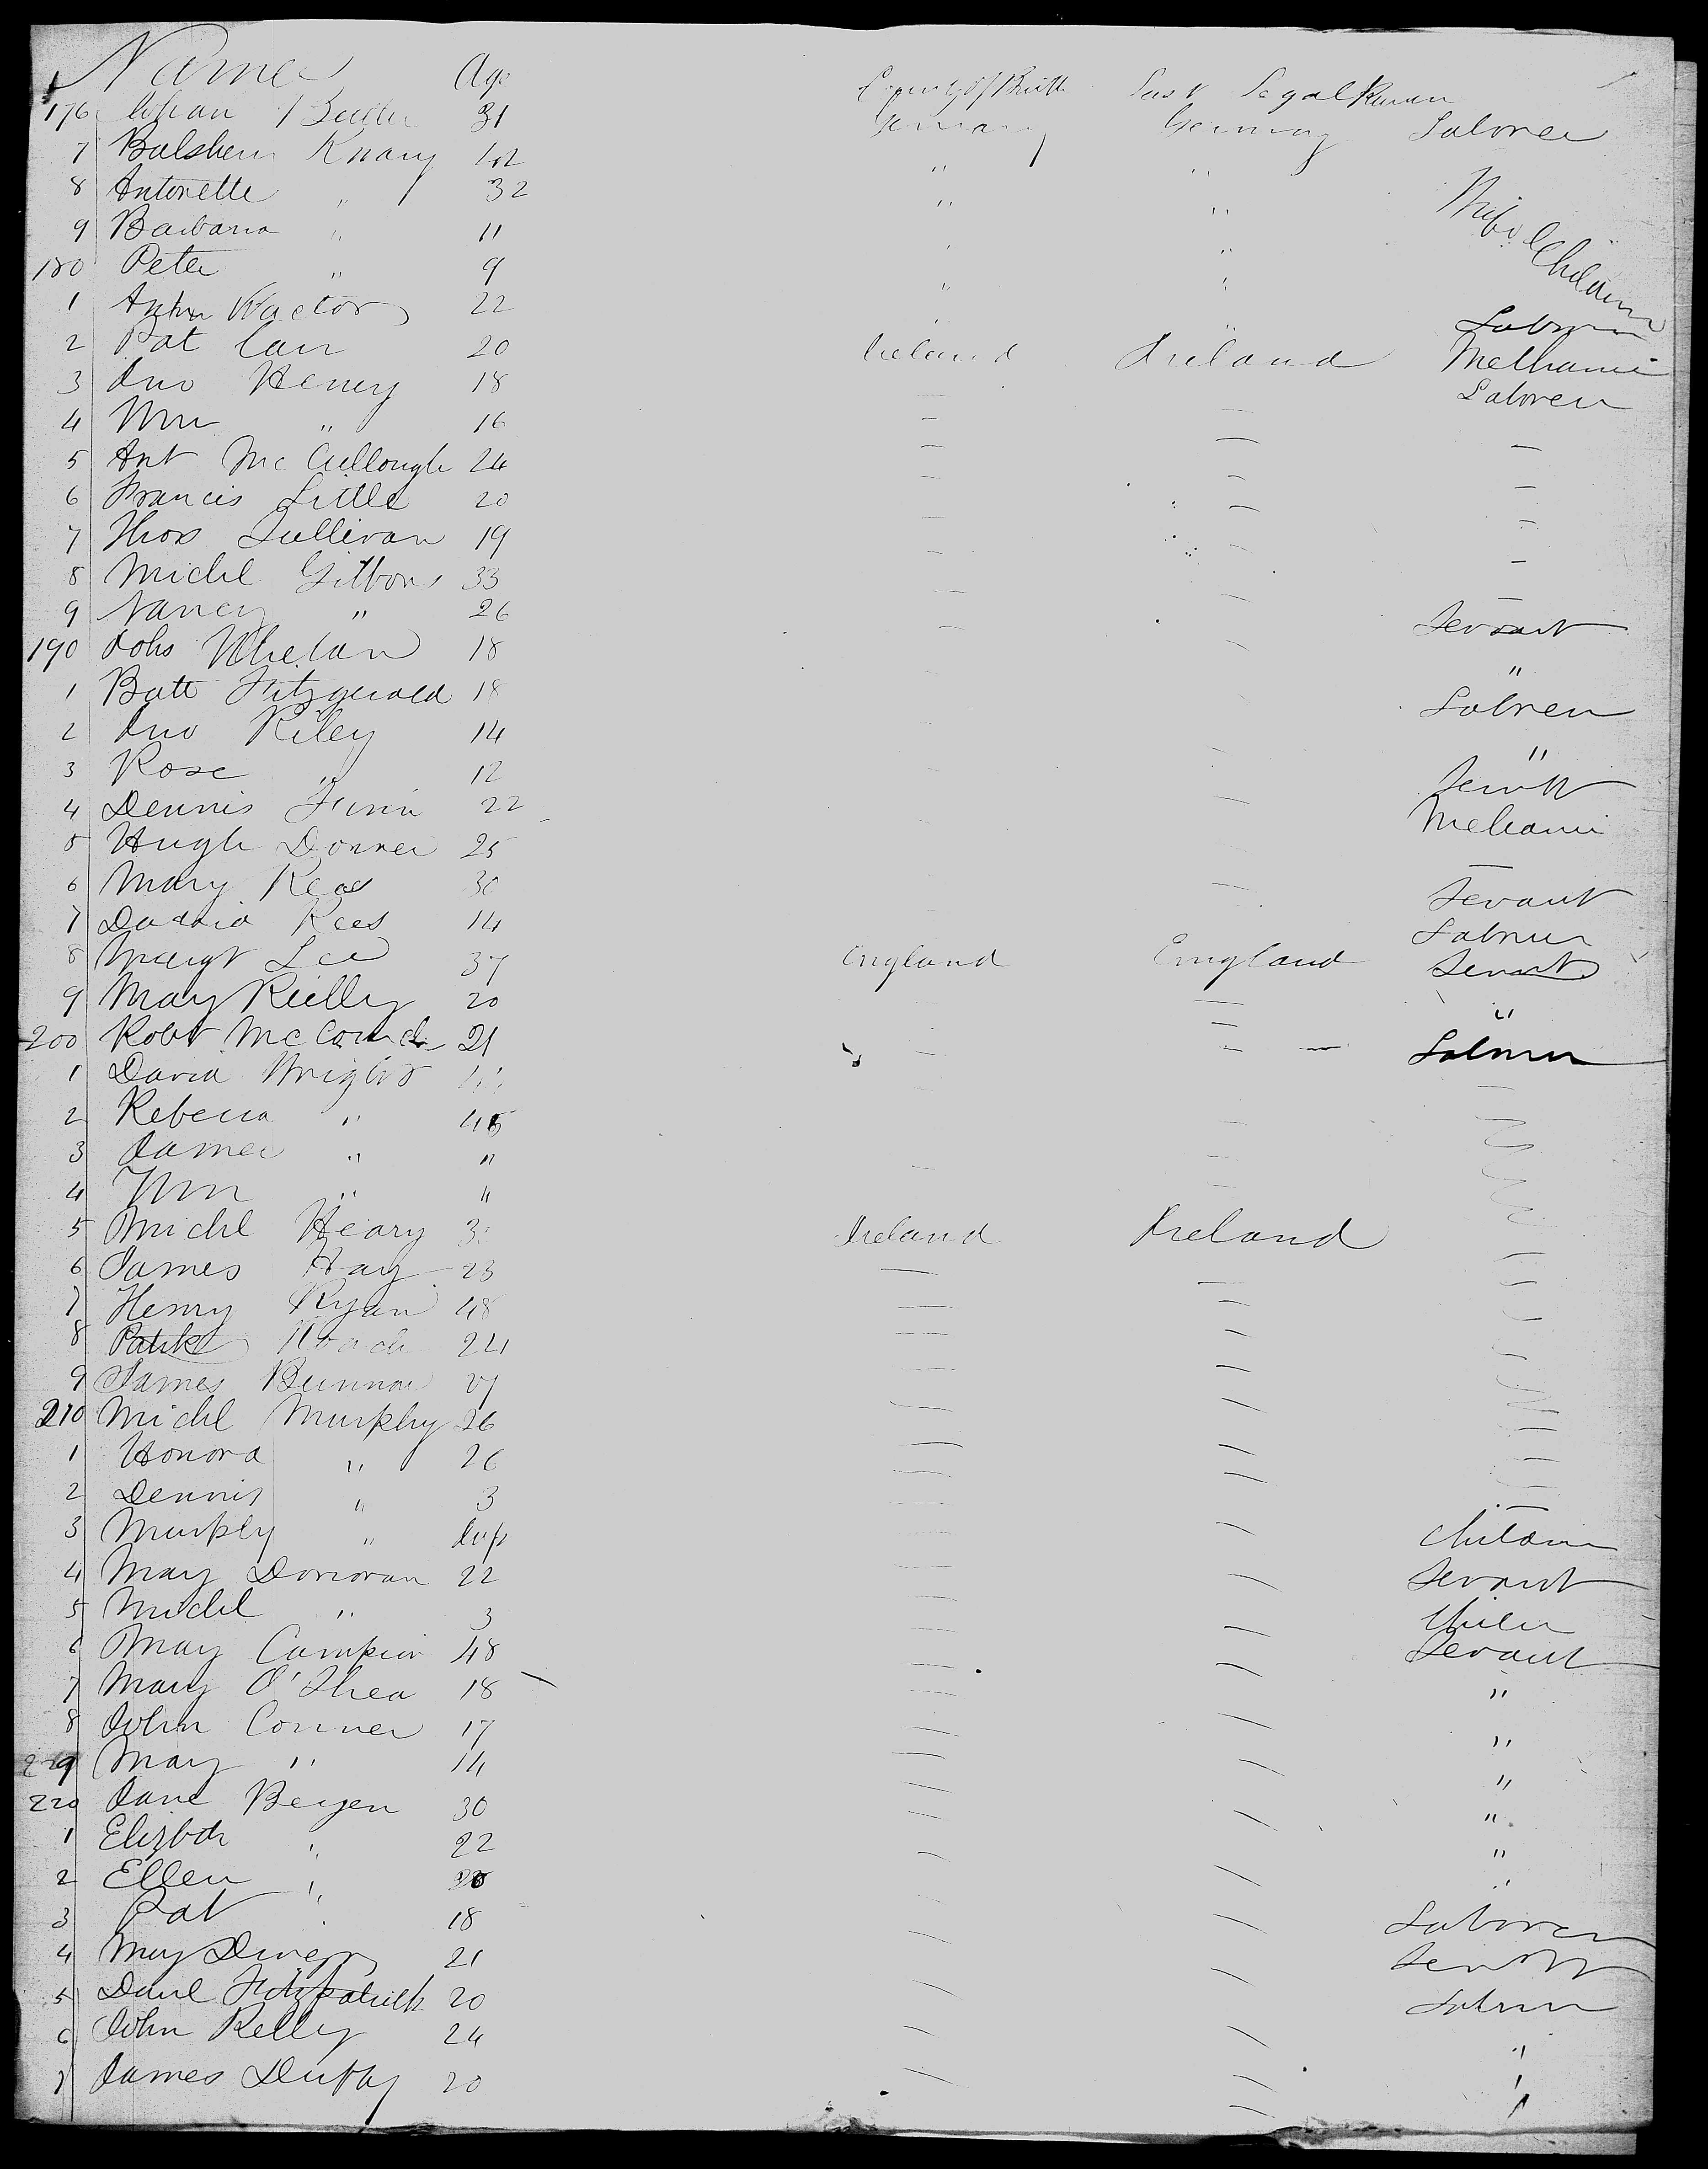 Names Age Country of Birth Last Legal
176 Johan 31 Germany Germany Laborer
7 Balsher Knary 42 " "
8 Antonette " 32 " " Wife & Children
9 Barbara " 11 " "
180 Peter " 9 " "
1 Anton Wactor 22 " " Laborer
2 Pat Carr 20 Ireland Ireland Mechanic
3 Jno Henry 18 — — Laborer
4 Wm " 16 — — —
5 Ant McCullough 24 — — —
6 Francis Little 20 — — —
7 Thos Sullivan 19 — — —
8 Michl Gibbons 33 — — —
9 Nancy " 26 — — Servant
190 Johs Whelan 18 — "
1 Batt Fitzgerald 18 Laborer
2 Jno Riley 14 — "
3 Rose " 12 — Servt
4 Dennis Finn 22 Mechanic
5 Hugh Donner 25 — —
6 Mary Rees 30 Servant
7 Rees 14 Laborer
8 Margt Lee 37 England England Servant
9 Mary Rielly 20 — — "
200 Robt 21 — — — Laborer
1 David Wright
2 Rebecca " 45 —
3 James " " —
4 Wm " " — —
5 Michl Heary Ireland Ireland
6 James Hay 23 — —
7 Henry Ryan 48 — —
8 Patrk Roach 24 — —
9 James 27 — —
210 Michl Murphy 26 — —
1 Honora " 26 — —
2 Dennis " 3 — — —
3 Murphy " Inft — — Children
4 Mary Donovan 22 — — Servant
5 Michl " 3 — — Child
6 Mary Campion 48 — — Servant
7 Mary O'Shea 18 — — "
8 John Conner 17 — — "
229 Mary " 14 — — "
220 Jane Bergen 30 — — "
1 Elizbth " 22 — — "
2 Ellen " — — "
3 Pat " 18 — — Laborer
4 Mary Dwyer 21 — — Servt
5 Danl Fitzpatrick 20 — — Laborer
6 John Kelly 24 — — "
7 James Duffy 20 — — "